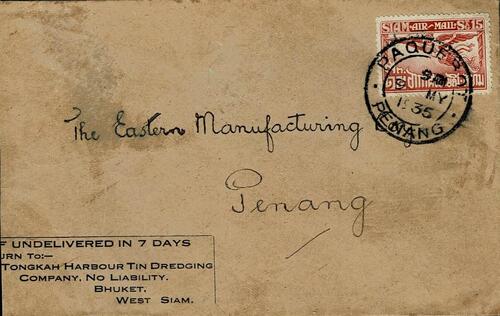 SIAM-AIR-MAIL-Sᵗ15
PAQUEBOT
9 MY
1935
PENANG
The Eastern Manufacturing Coy.
Penang
F UNDELIVERED IN 7 DAYS
URN TO:-
TONGKAH HARBOUR TIN DREDGING
COMPANY, NO LIABILITY.
BHUKET.
WEST SIAM.